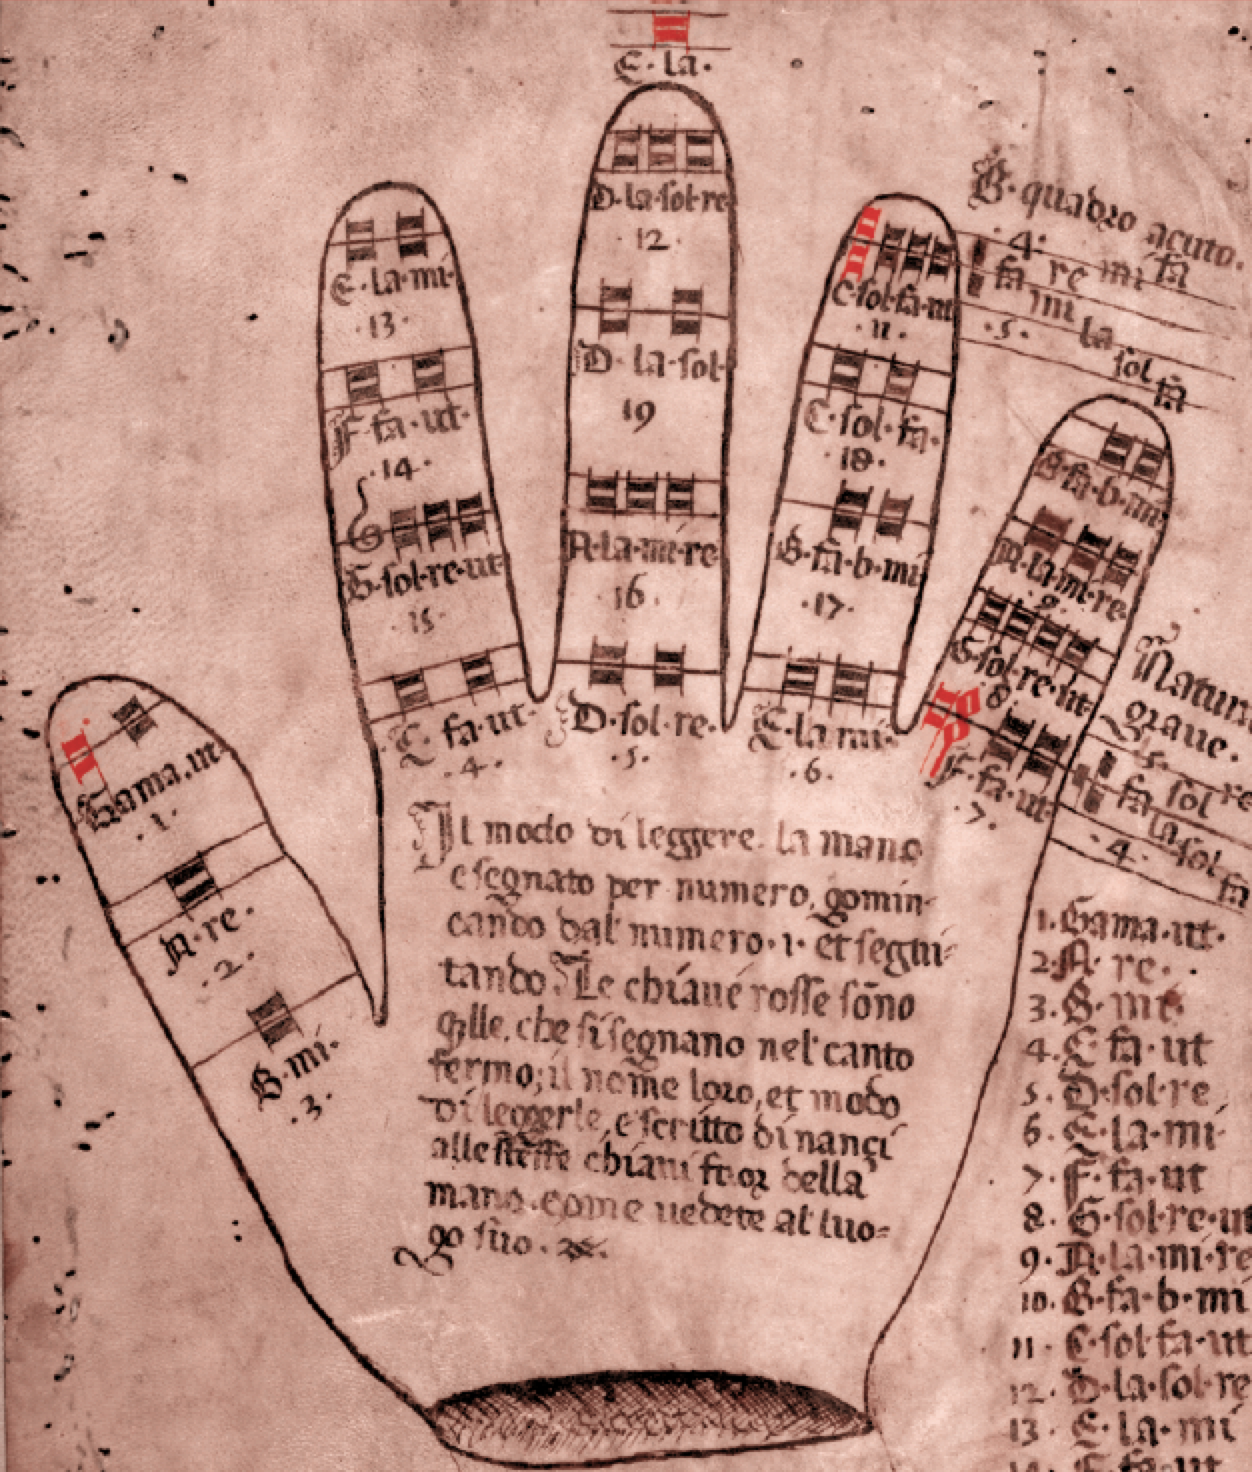 E·la·
D·la·sol·re
12
D·la·sol·
19
A·la·mi·re
16
D·sol·re·
5
E·la·mi·
13
F·fa·ut·
14
G·sol·re·ut
15
C·fa·ut·
4
C·sol·fa·ut
11
C·sol·fa·
18
B·fa·b·mi
17
E·la·mi·
6
B·fa·b·mi
A·la·mi·re·
9
G·sol·re·ut
8
F·fa·ut
7
Gama·ut·
1
A·re·
2
B·mi·
3
B·quadro acuto·
4
fa re mi fa
fa mi
5 la sol fa
Natura
graue·
5 re
fa sol
la sol
4 fa
Il modo di leggere la mano
e segnato per numero, gomin-
cando dal numero·1· et segui=
tando Le chiaue rosse sōno
q̄lle, che si segnano nel canto
fermo; il nome loro, et modo
di leggerle, e scritto dinanci
alle stesse chiaui fuor della
mano·come uedete al luo=
go suo·
1·Gama·ut·
2·A·re·
3·B·mi
4·C·fa·ut
5·D·sol·re
6·E·la·mi
7·F·fa·ut
8·G·sol·re·ut
9·A·la·mi·re
10·B·fa·b·mi
11·C·sol·fa·ut
12·D·la·sol·re
13·E·la·mi
14·F·fa·ut